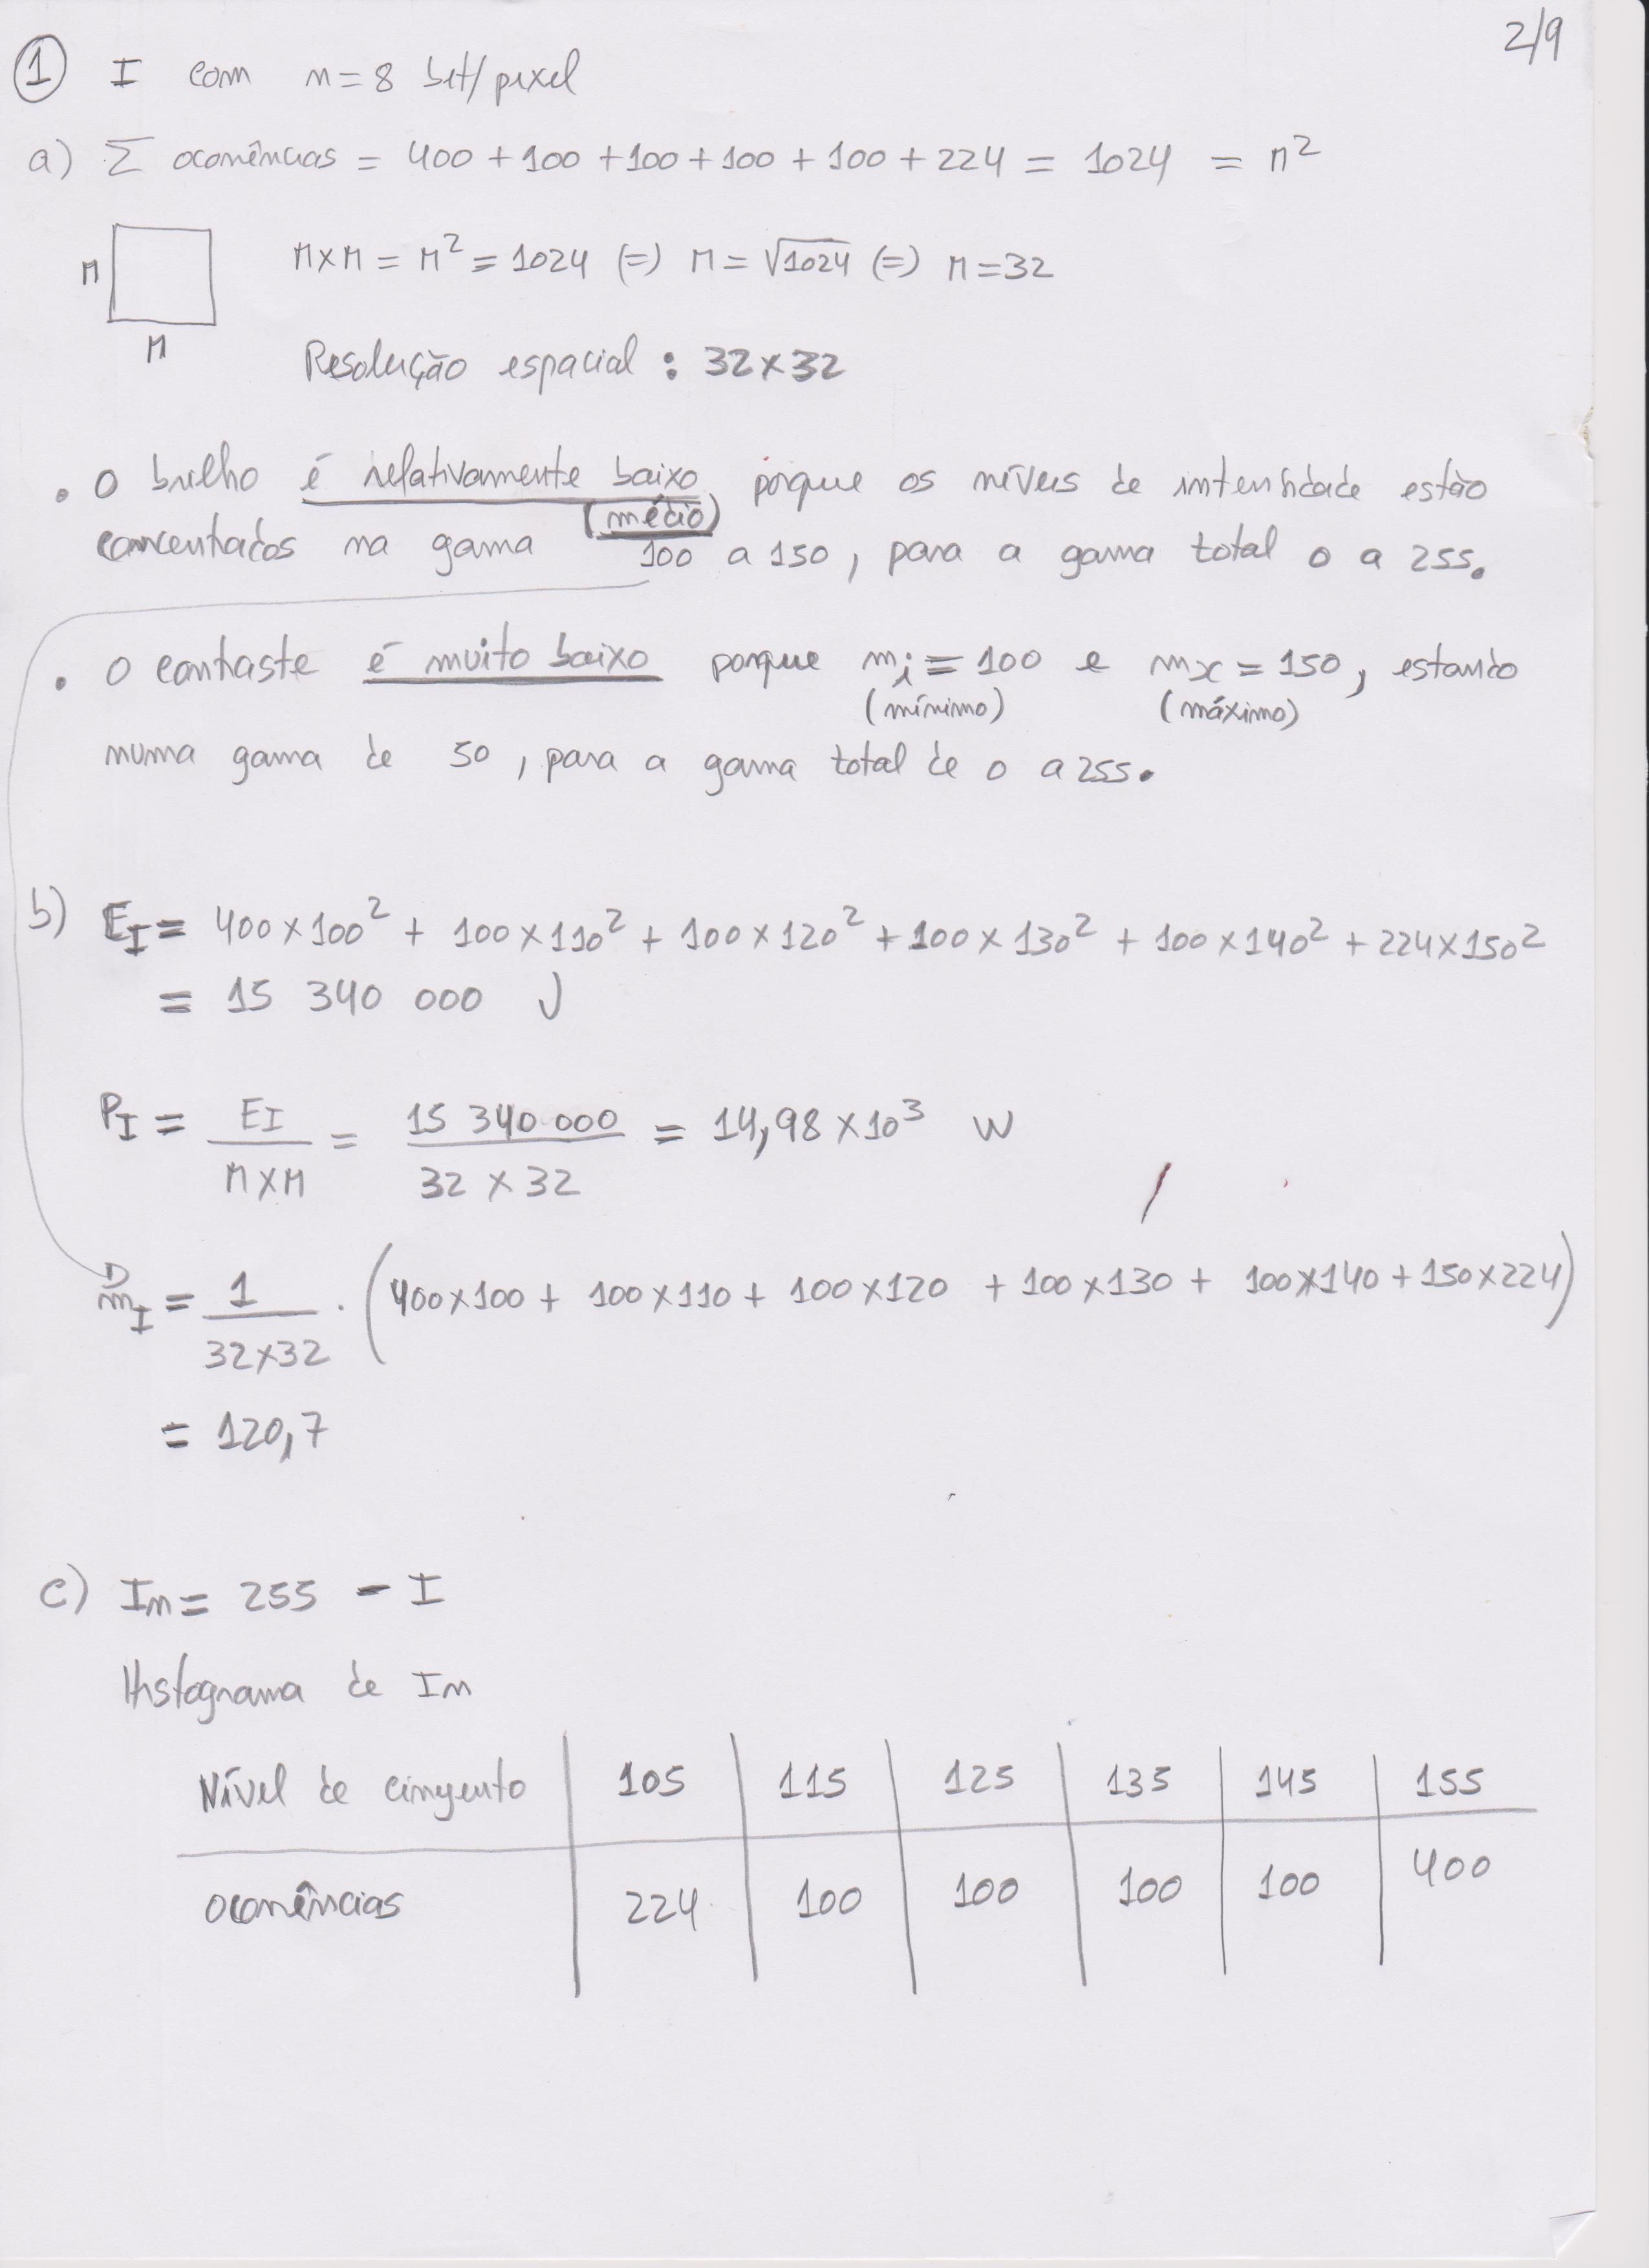 2/9
① I com n = 8 bit/pixel
a) Σ ocorrências = 400 + 100 + 100 + 100 + 100 + 224 = 1024 = M²
M
M×M = M² = 1024 (=) M = √1024 (=) M = 32
M
Resolução espacial : 32×32
• O brilho é relativamente baixo porque os níveis de intensidade estão
(médio)
concentrados na gama 100 a 150, para a gama total 0 a 255.
• O contraste é muito baixo porque mi = 100 e mx = 150, estando
(mínimo) (máximo)
numa gama de 50, para a gama total de 0 a 255.
b) E_I = 400×100² + 100×110² + 100×120² + 100×130² + 100×140² + 224×150²
= 15 340 000 J
P_I = E_I / M×M = 15 340 000 / 32×32 = 14,98×10³ W
m_I = 1 / 32×32 . (400×100 + 100×110 + 100×120 + 100×130 + 100×140 + 150×224)
= 120,7
c) In = 255 - I
Histograma de In
Nível de cinzento | 105 | 115 | 125 | 135 | 145 | 155
ocorrências | 224 | 100 | 100 | 100 | 100 | 400